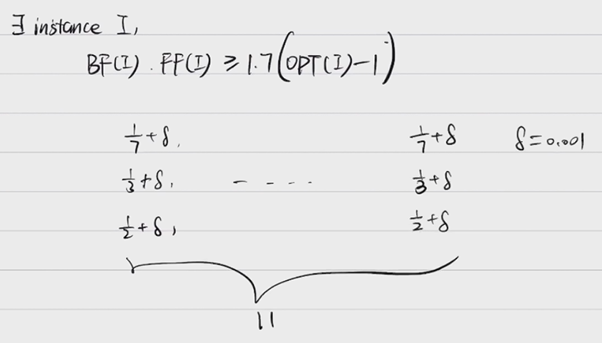 ∃ instance I,
BF(I). FF(I) ≥ 1.7(OPT(I)-1)
1/7+δ, 1/7+δ δ=0.001
1/3+δ, - .... 1/3+δ
1/2+δ, 1/2+δ
11